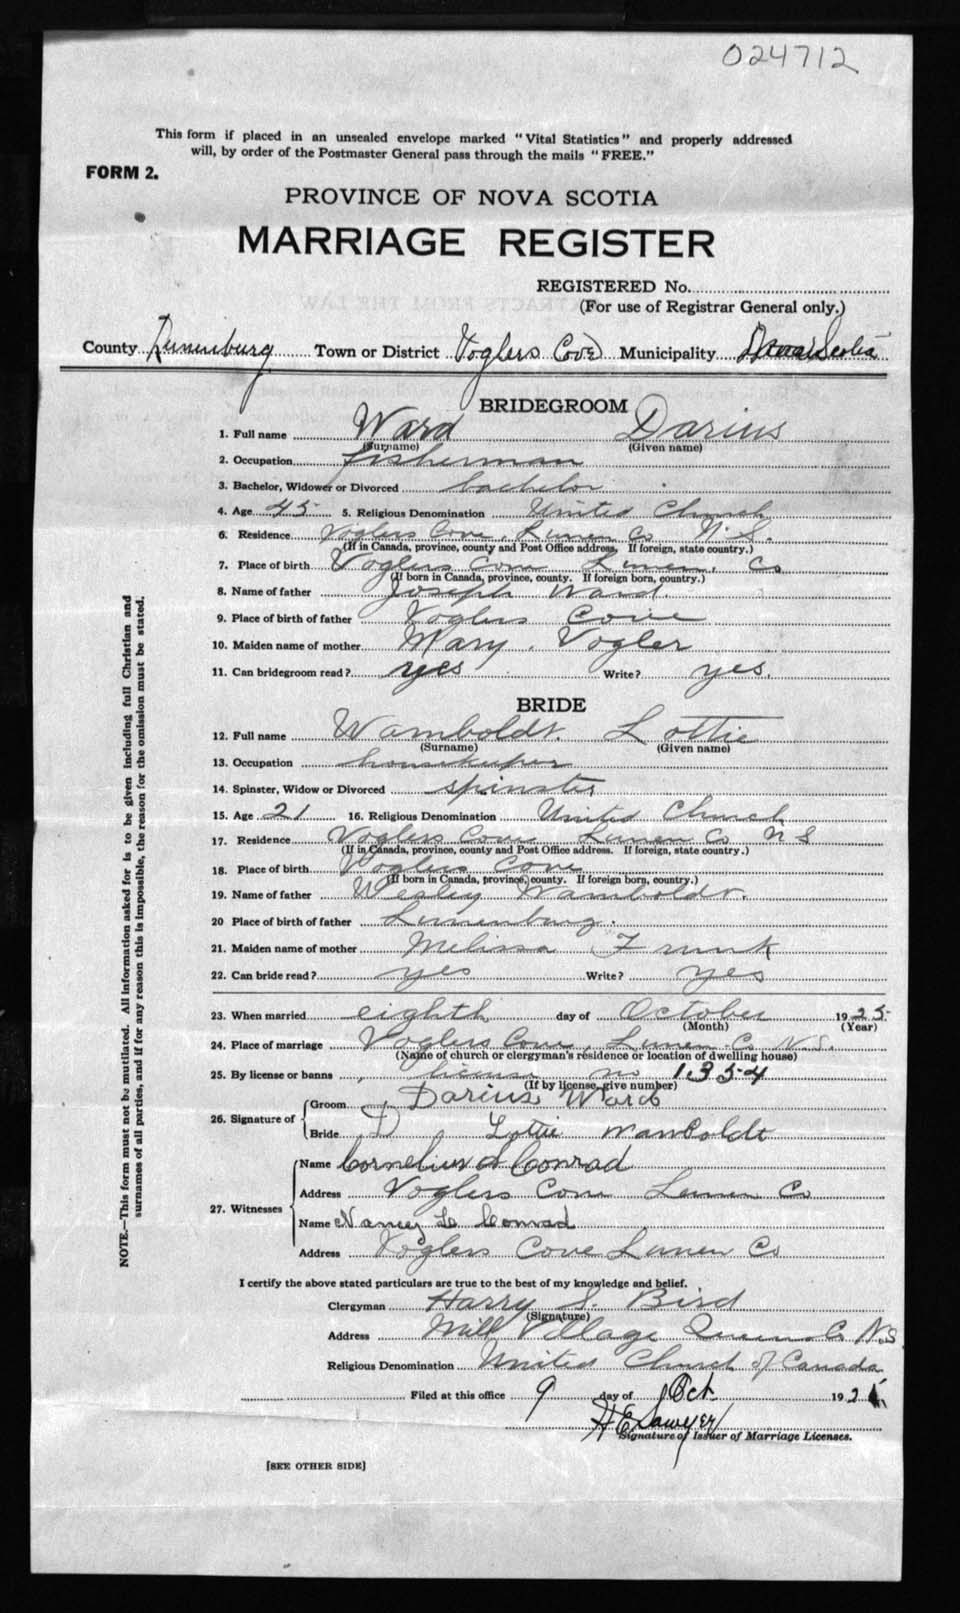 024712
This form if placed in an unsealed envelope marked "Vital Statistics" and properly addressed
will, by order of the Postmaster General pass through the mails "FREE."
FORM 2.
PROVINCE OF NOVA SCOTIA
MARRIAGE REGISTER
REGISTERED No.
(For use of Registrar General only.)
County Lunenburg Town or District Voglers Cove Municipality Scotia
BRIDEGROOM
1. Full name Ward Darius
(Surname) (Given name)
2. Occupation fisherman
3. Bachelor, Widower or Divorced bachelor
4. Age 45 5. Religious Denomination United Church
6. Residence Voglers Cove, Lunen Co N.S.
(If in Canada, province, county and Post Office address, If foreign, state country.)
7. Place of birth Voglers Cove Lunen. Co
(If born in Canada, province, county. If foreign born, country.)
8. Name of father Joseph Ward
9. Place of birth of father Voglers Cove
10. Maiden name of mother Mary Vogler
11. Can bridegroom read? yes Write? yes.
BRIDE
12. Full name Wamboldt. Lottie
(Surname) (Given name)
13. Occupation housekeeper
14. Spinster, Widow or Divorced spinster
15. Age 21 16. Religious Denomination United Church
17. Residence Voglers Cove Lunen Co N S
(If in Canada, province, county and Post Office address. If foreign, state country.)
18. Place of birth Voglers Cove
(If born in Canada, province, county. If foreign born, country.)
19. Name of father Wesley Wamboldt.
20 Place of birth of father Lunenburg.
21. Maiden name of mother Melissa
22. Can bride read? yes Write? yes
23. When married eighth day of October 1925
(Month) (Year)
24. Place of marriage Voglers Cove, Lunen Co N.S.
(Name of church or clergyman's residence or location of dwelling house)
25. By license or banns license no 1354
(If by license, give number)
26. Signature of
Groom Darius Ward
Bride Lottie Wamboldt
27. Witnesses
Name Cornelius A Conrad
Address Voglers Cove Lunen Co
Name Nancy L Conrad
Address Voglers Cove Lunen Co
I certify the above stated particulars are true to the best of my knowledge and belief.
Clergyman Harry S. Bird
(Signature)
Address Mill Village Queens Co N.S
Religious Denomination United Church of Canada
Filed at this office 9 day of Oct. 192
H E Sawyer
Signature of Issuer of Marriage Licenses.
[SEE OTHER SIDE]
NOTE.—This form must not be mutilated. All information asked for is to be given including full Christian and
surnames of all parties, and if for any reason this is impossible, the reason for the omission must be stated.